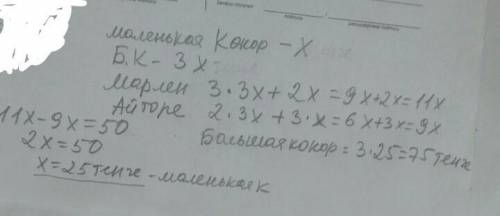 маленькая Кокор – X
Б.К – 3 X
Марлен 3·3x + 2x = 9x+2x=11x
Айторе 2·3x + 3·x = 6x+3x=9x
11x-9x=50
Большая кокор = 3·25=75 тенге
2x=50
x=25 тенге - маленькая к